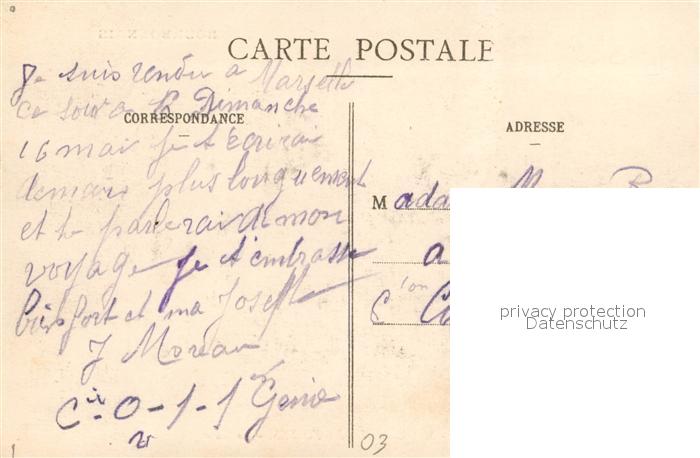 CARTE POSTALE
CORRESPONDANCE
ADRESSE
Je suis rendu a Marseth
ce soir a Dimanche
16 mai je t'écrirai
demain plus longuement
et te parlerai de mon
voyage je t'embrasse
bien fort et ma Joseth
J Moreau
Cie 0-1-1 Genie
Mada
a
C^on
privacy protection
Datenschutz
03